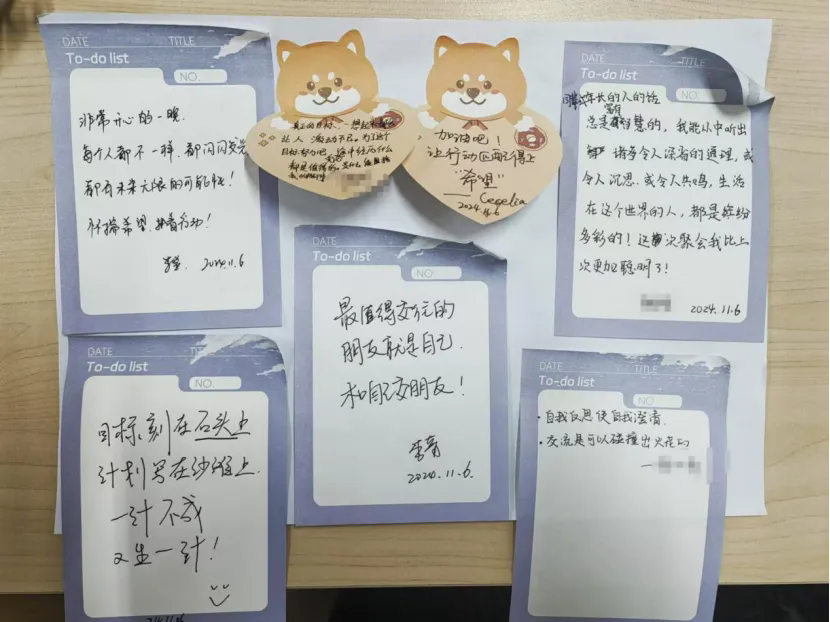 DATE TITLE
To-do list
NO.
非常开心的一晚
每个人都不一样、都闪闪发光
都有未来无限的可能性!
怀揣希望,
2024.11.6
真正的目标,一想起来就会
让人激动不已。为了这个
目标努力吧,途中经历什么
都是值得的。
加油吧!
让行动匹配得上
“希望”
—— Cecelia
2024.11.6
DATE TITLE
To-do list
NO.
年长的人的话
总是富有智慧的,我能从中听出
诸多令人深省的道理,或
令人沉思、或令人共鸣,生活
在这个世界的人,都是缤纷
多彩的!这次聚会我比上
次更加聪明了!
2024.11.6
DATE TITLE
To-do list
NO.
最值得交往的
朋友就是自己.
和自己交朋友!
2024.11.6.
DATE TITLE
To-do list
NO.
目标,刻在石头上
计划写在沙滩上.
一计不成
又生一计!
24.11.6
DATE TITLE
To-do list
NO.
· 自我反思使自我澄清.
· 交流是可以碰撞出火花的